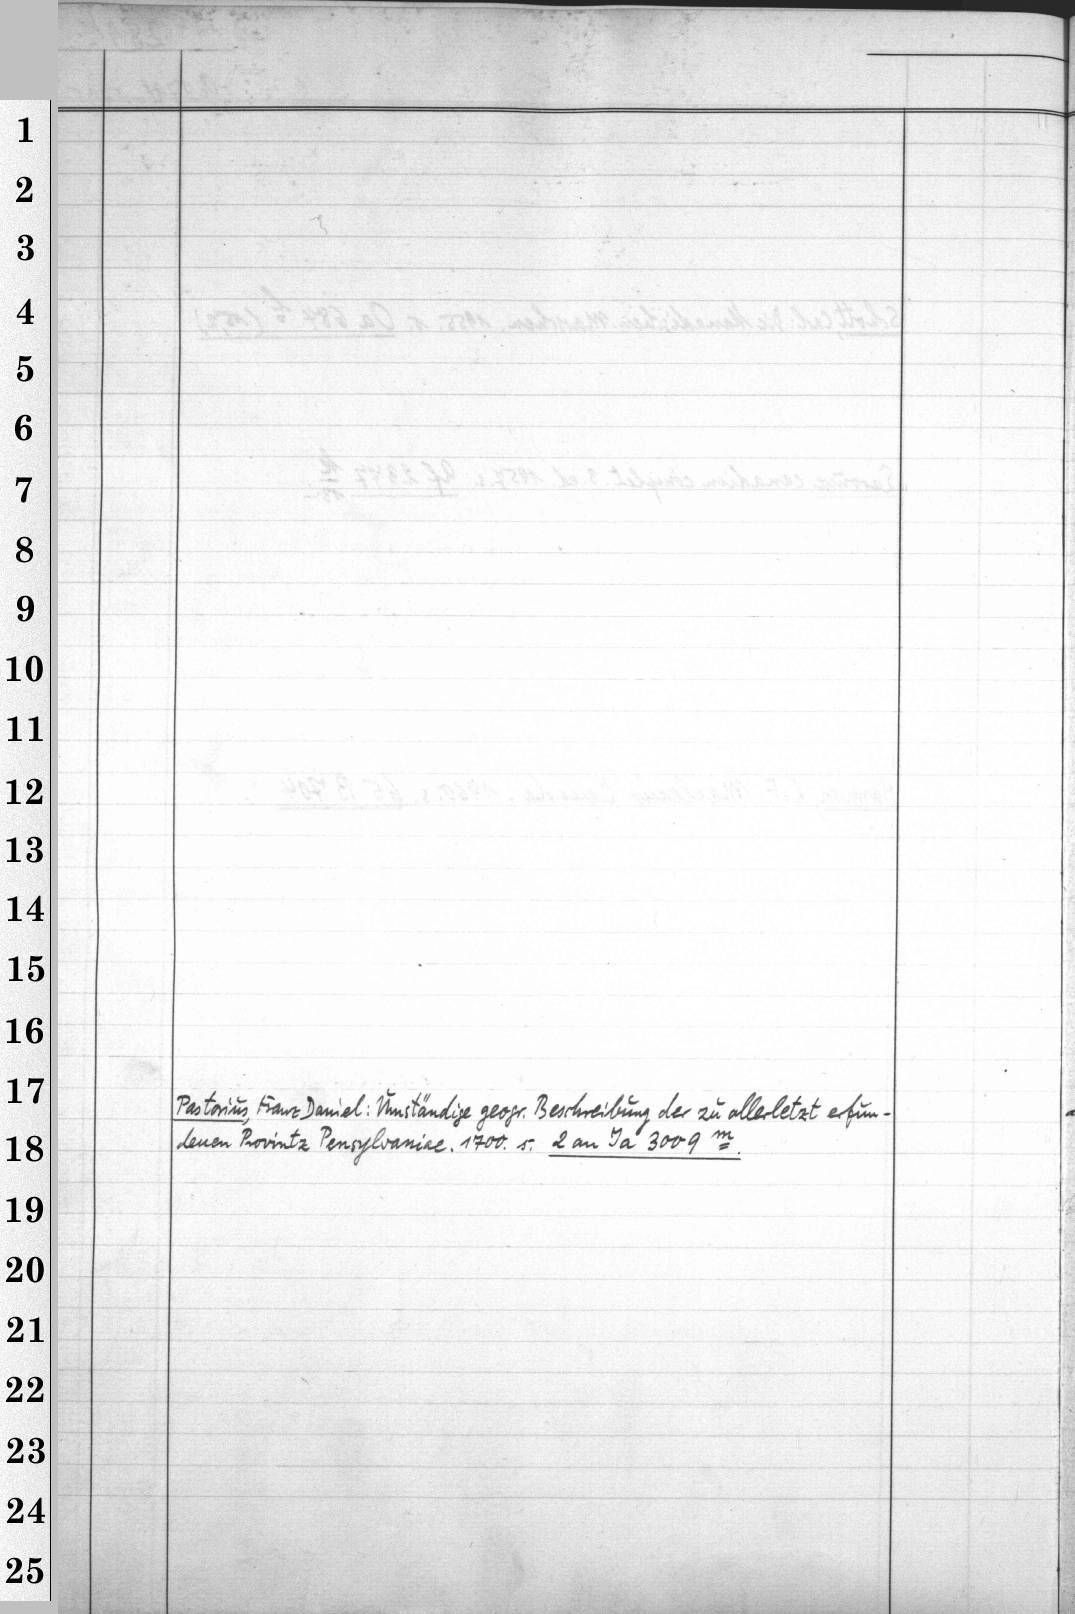 1
2
3
4
5
6
7
8
9
10
11
12
13
14
15
16
17
Pastorius, Franz Daniel: Umständige geogr. Beschreibung der zu allerletzt erfun-
18
denen Provintz Pensylvaniae. 1700. s. 2 an Ia 3009 m.
19
20
21
22
23
24
25